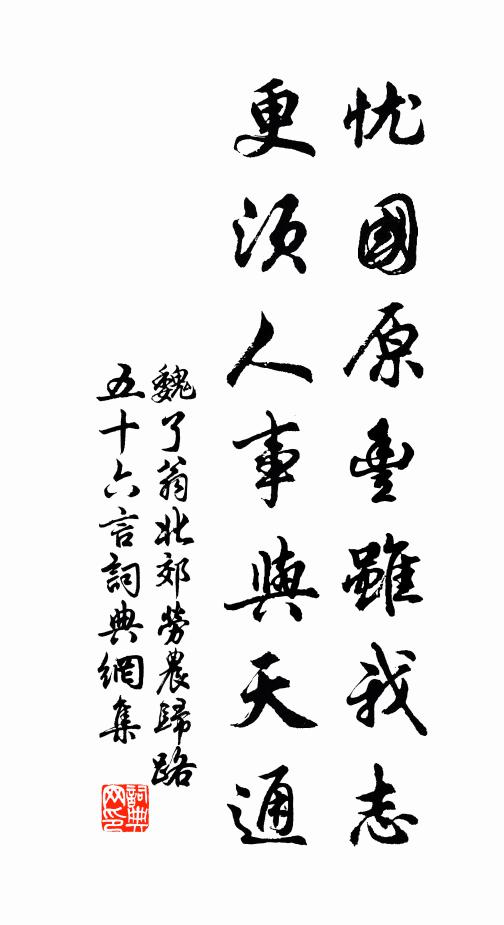 忧國原豊雖我志
更須人事與天通
魏了翁北郊勞農歸路
五十六言詞典網集
詞典网印